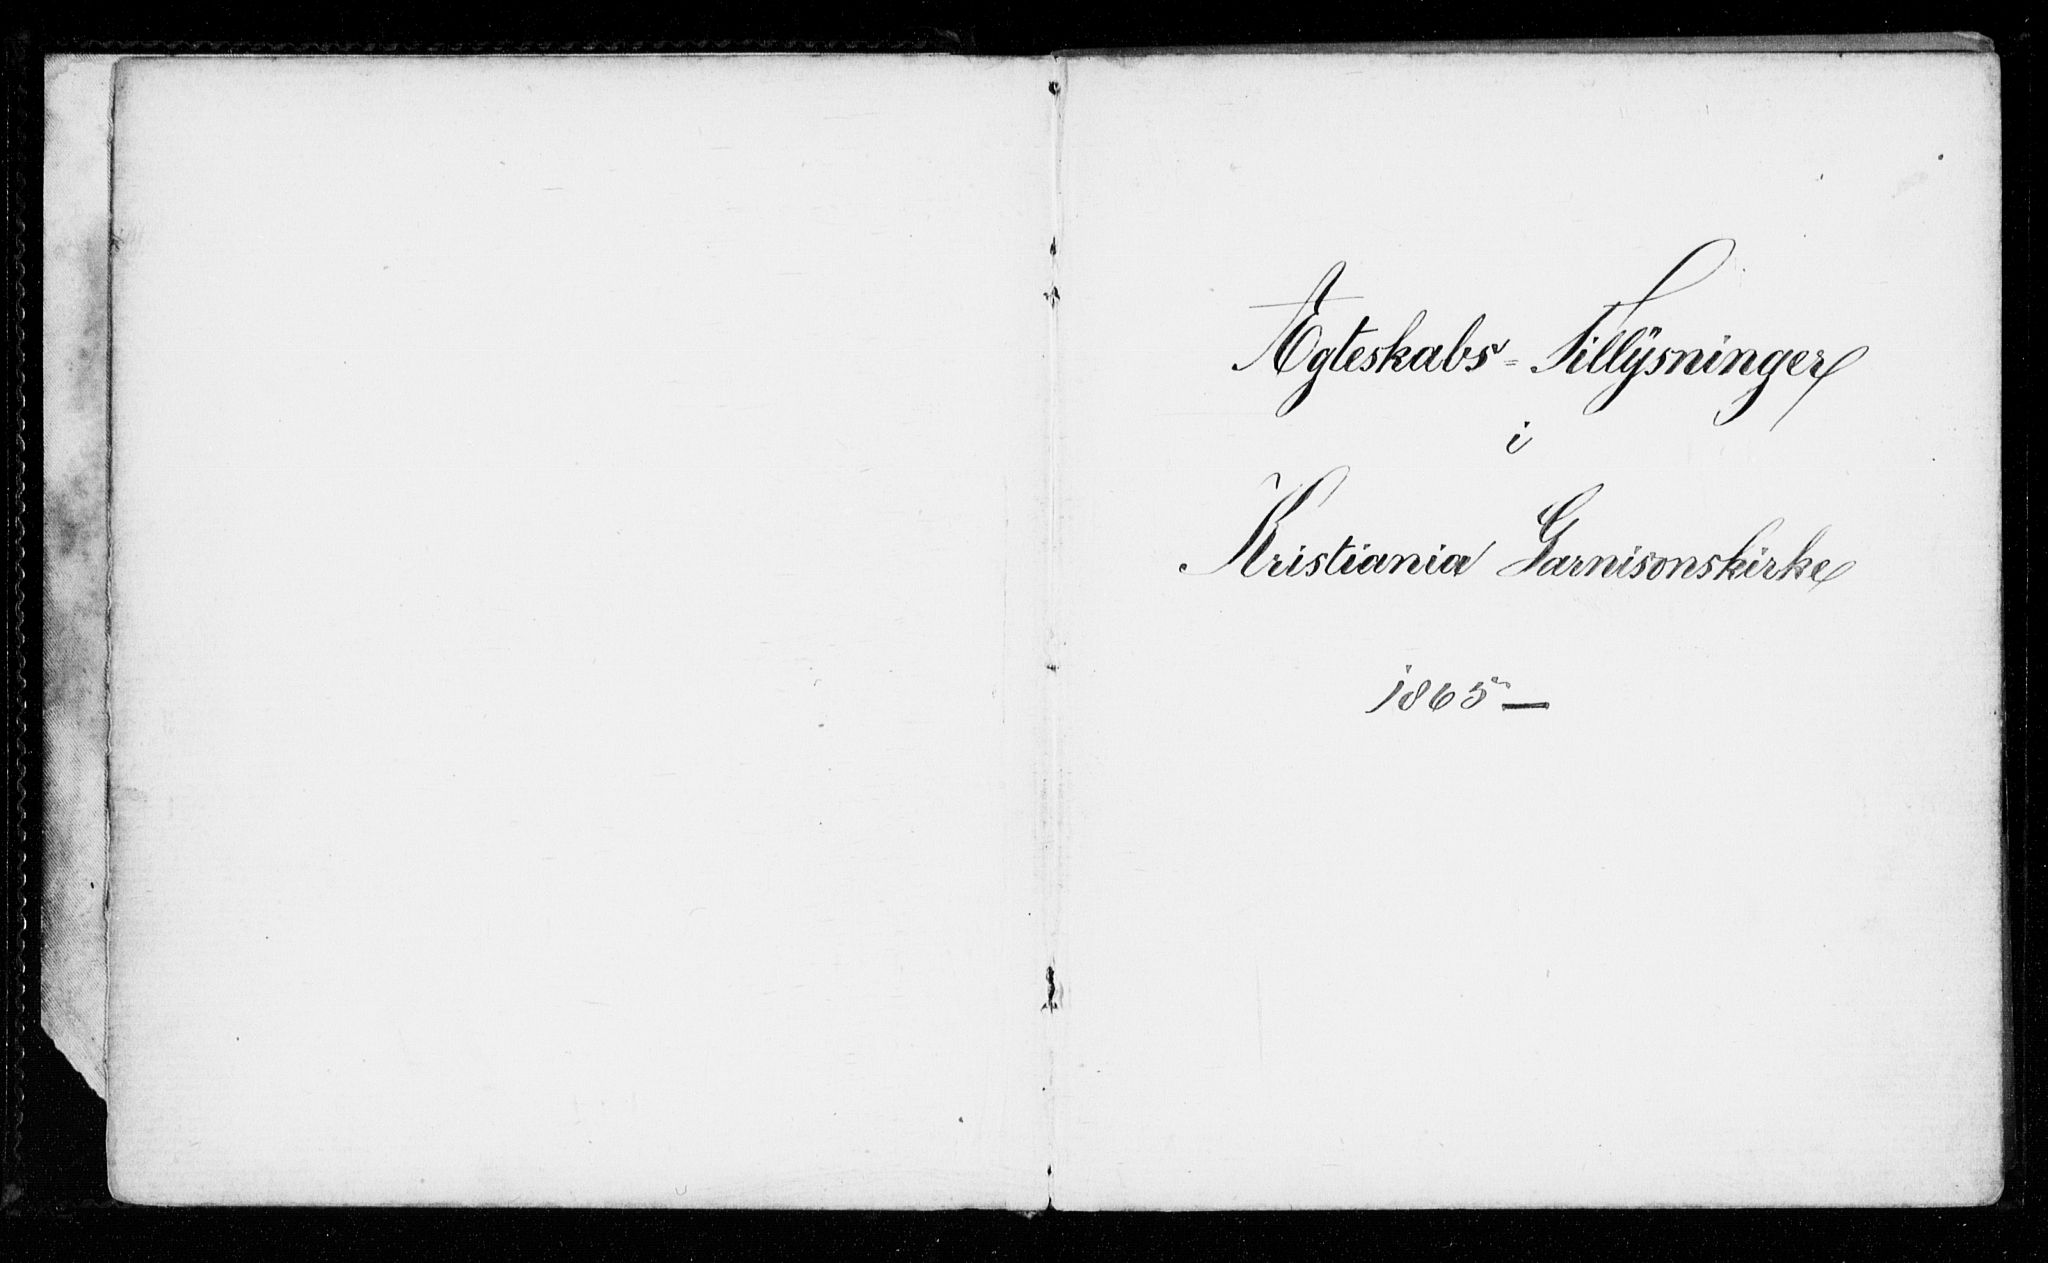 Ægteskabs-Tillysninger
i
Kristiania Garnisonskirke
1865 —